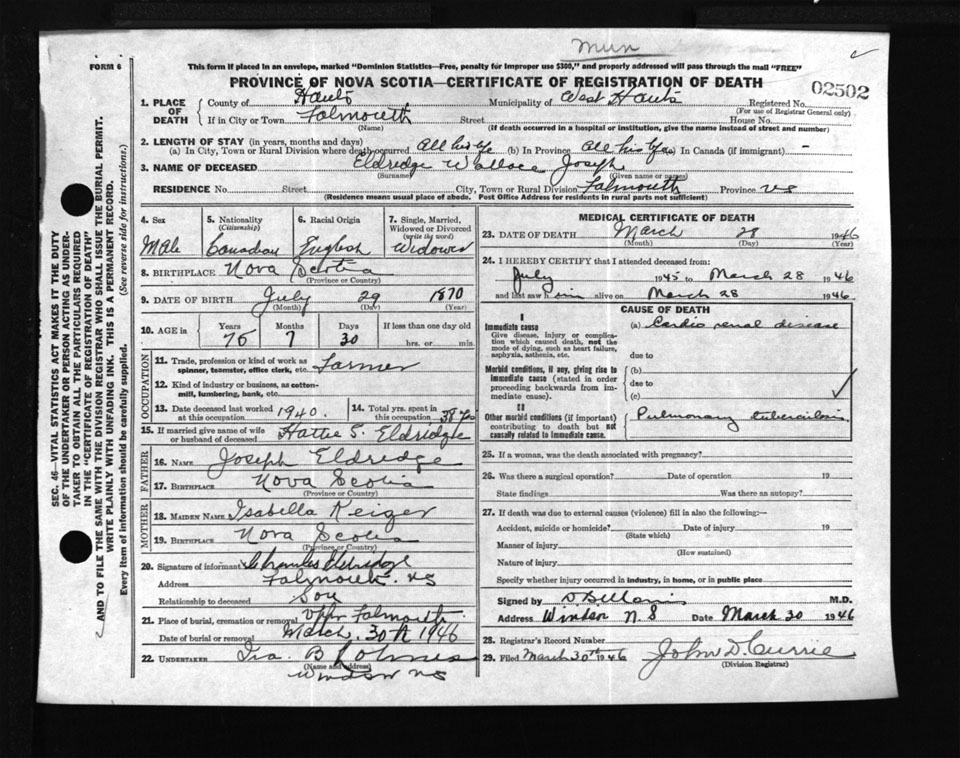 Mun
FORM 6
This form if placed in an envelope, marked "Dominion Statistics—Free, penalty for improper use $300," and properly addressed will pass through the mail "FREE"
PROVINCE OF NOVA SCOTIA—CERTIFICATE OF REGISTRATION OF DEATH
02502
SEC. 46—VITAL STATISTICS ACT MAKES IT THE DUTY
OF THE UNDERTAKER OR PERSON ACTING AS UNDER-
TAKER TO OBTAIN ALL THE PARTICULARS REQUIRED
IN THE "CERTIFICATE OF REGISTRATION OF DEATH"
AND TO FILE THE SAME WITH THE DIVISION REGISTRAR WHO SHALL ISSUE THE BURIAL PERMIT.
WRITE PLAINLY WITH UNFADING INK. THIS IS A PERMANENT RECORD.
Every item of information should be carefully supplied. (See reverse side for instructions.)
1. PLACE OF DEATH County of Hants Municipality of West Hants Registered No.
(For use of Registrar General only)
If in City or Town Falmouth Street House No.
(Name) (If death occurred in a hospital or institution, give the name instead of street and number)
2. LENGTH OF STAY (in years, months and days)
(a) In City, Town or Rural Division where death occurred All his life (b) In Province All his life (c) In Canada (if immigrant) -
3. NAME OF DECEASED Eldredge Wallace Joseph
(Surname) (Given name or names)
RESIDENCE No. Street City, Town or Rural Division Falmouth Province NS
(Residence means usual place of abode. Post Office Address for residents in rural parts not sufficient)
4. Sex Male
5. Nationality (Citizenship) Canadian
6. Racial Origin English
7. Single, Married, Widowed or Divorced (write the word) Widower
8. BIRTHPLACE Nova Scotia
(Province or Country)
9. DATE OF BIRTH July 29 1870
(Month) (Day) (Year)
10. AGE in Years 76 Months 7 Days 30 If less than one day old hrs. or min.
OCCUPATION
11. Trade, profession or kind of work as spinner, teamster, office clerk, etc. Farmer
12. Kind of industry or business, as cotton-mill, lumbering, bank, etc.
13. Date deceased last worked at this occupation 1940.
14. Total yrs. spent in this occupation 58 yrs
15. If married give name of wife or husband of deceased Hattie S. Eldridge
FATHER
16. NAME Joseph Eldredge
17. BIRTHPLACE Nova Scotia
(Province or Country)
MOTHER
18. MAIDEN NAME Isabella Keizer
19. BIRTHPLACE Nova Scotia
(Province or Country)
20. Signature of informant Charles Eldridge
Address Falmouth. NS
Relationship to deceased Son
21. Place of burial, cremation or removal Upper Falmouth.
Date of burial or removal March. 30th 1946
22. UNDERTAKER Ira. B Holmes
(Name and address)
Windsor NS
MEDICAL CERTIFICATE OF DEATH
23. DATE OF DEATH March 28 1946
(Month) (Day) (Year)
24. I HEREBY CERTIFY that I attended deceased from:
July 1945 to March 28 1946
and last saw him alive on March 28 1946
CAUSE OF DEATH
I
Immediate cause
Give disease, injury or complication which caused death, not the mode of dying, such as heart failure, asphyxia, asthenia, etc.
(a) Cardio renal disease
due to
Morbid conditions, if any, giving rise to immediate cause (stated in order proceeding backwards from immediate cause).
(b)
due to
(c)
II
Other morbid conditions (if important) contributing to death but not causally related to immediate cause.
Pulmonary tuberculosis
25. If a woman, was the death associated with pregnancy?
26. Was there a surgical operation? Date of operation 19
State findings Was there an autopsy?
27. If death was due to external causes (violence) fill in also the following:—
Accident, suicide or homicide? Date of injury 19
(State which)
Manner of injury
(How sustained)
Nature of injury
Specify whether injury occurred in industry, in home, or in public place
Signed by M.D.
Address Windsor N. S Date March 30 1946
28. Registrar's Record Number
29. Filed March 30th 1946 John D. Currie
(Division Registrar)